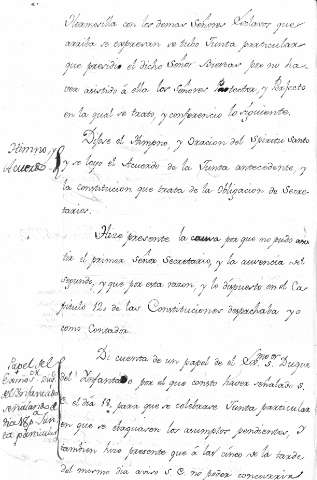 Hermosilla con los demas Señores Esclavos que
arriba se expresan se tubo Junta particular
que presidio el dicho Señor por no ha
ver asistido á ella los Señores Protector, y Prefecto
en la qual se trato, y conferencio lo siguiente.
Himno, y
Acuerdo
Dijose el Hymno, y Oracion del Espiritu Santo
y se leyo el Acuerdo de la Junta antecedente, y
la constitucion que trata de la Obligacion de Secre-
tarios.
Hize presente la causa por que no pudo asis
tir el primer señor Secretario, y la ausencia del
segundo, y que por esta razon, y lo dispuesto en el Ca
pitulo 12, de las Constituciones despachaba yo
como Contador.
Papel del
Duque
del Infantado
señalando el
dia 18, para Jun
ta particular
Di cuenta de un papel de el Sr. Duque
del Infantado por el que consto haver señalado S.
E. el dia 18, para que se celebrase Junta particular
en que se evaquasen los asumptos pendientes, y
tambien hize presente que á las cinco de la tarde
del mismo dia aviso S. E. no poder concurrir á